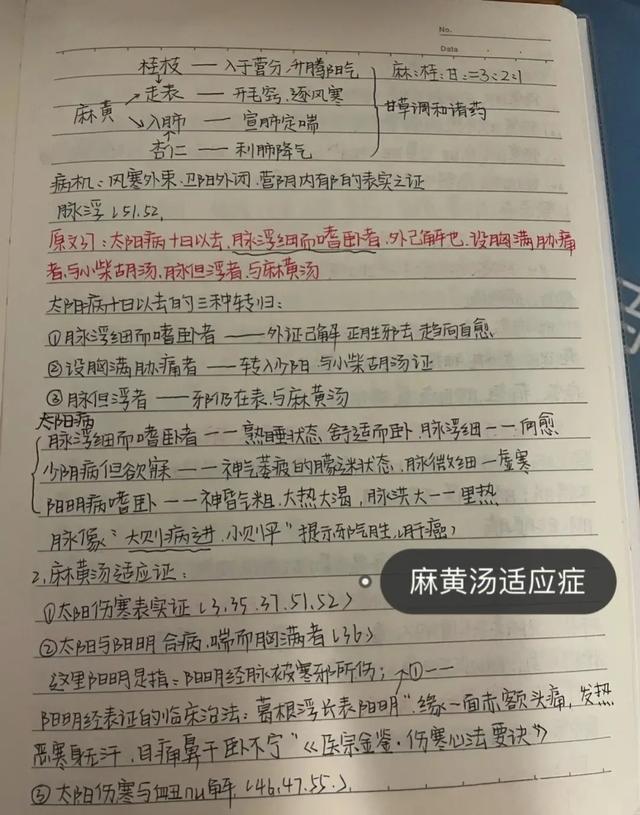 No.
Data
桂枝 — 入于营分,升腾阳气
麻:桂:甘:=3:2:1
走表 — 开毛窍,逐风寒
麻黄
甘草调和诸药
入肺 — 宣肺定喘
杏仁 — 利肺降气
病机:风寒外束.卫阳外闭.营阴内郁的表实之证
脉浮(51.52.
原文37:太阳病十日以去,脉浮细而嗜卧者,外已解也.设胸满胁痛
者,与小柴胡汤,脉但浮者,与麻黄汤
太阳病十日以去的三种转归:
①脉浮细而嗜卧者 —— 外证已解 正胜邪去 趋向自愈
②设胸满胁痛者 —— 转入少阳 与小柴胡汤证
③脉但浮者 —— 邪仍在表,与麻黄汤
太阳病
脉浮细而嗜卧者 —— 熟睡状态,舒适而卧,脉浮细 —— 向愈
少阴病但欲寐 —— 神气萎疲的朦迷状态,脉微细 — 虚寒
阳明病嗜卧 —— 神昏气粗.大热大渴,脉洪大 — 里热
脉像"大则病进,小则平"提示邪气胜,(肝癌)
2.麻黄汤适应证:
麻黄汤适应症
①太阳伤寒表实证(3,35.37.51,52)
②太阳与阳明合病,喘而胸满者(36)
这里阳明是指:阳明经脉被寒邪所伤; ①——
阳明经表证的临床治法:葛根浮长表阳明"缘缘一面赤额头痛,发热
恶寒身无汗,目痛鼻干卧不宁"《医宗金鉴·伤寒心法要诀》
③太阳伤寒与衄解(46,47.55.)